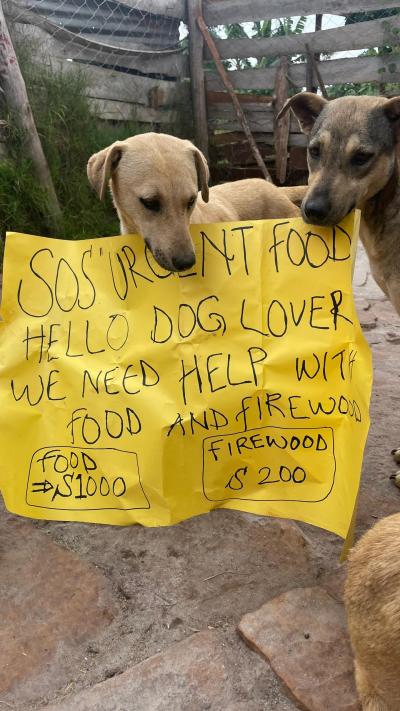 SOS URGENT FOOD
HELLO DOG LOVER
WE NEED HELP WITH
FOOD AND FIREWOOD
FOOD
⇒$1000
FIREWOOD
$ 200